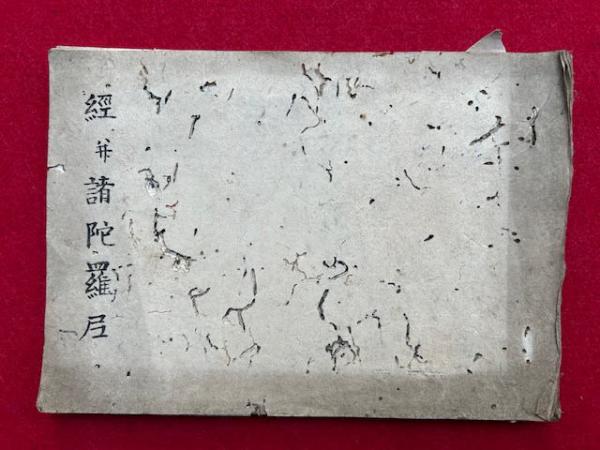 經并諸陀羅尼